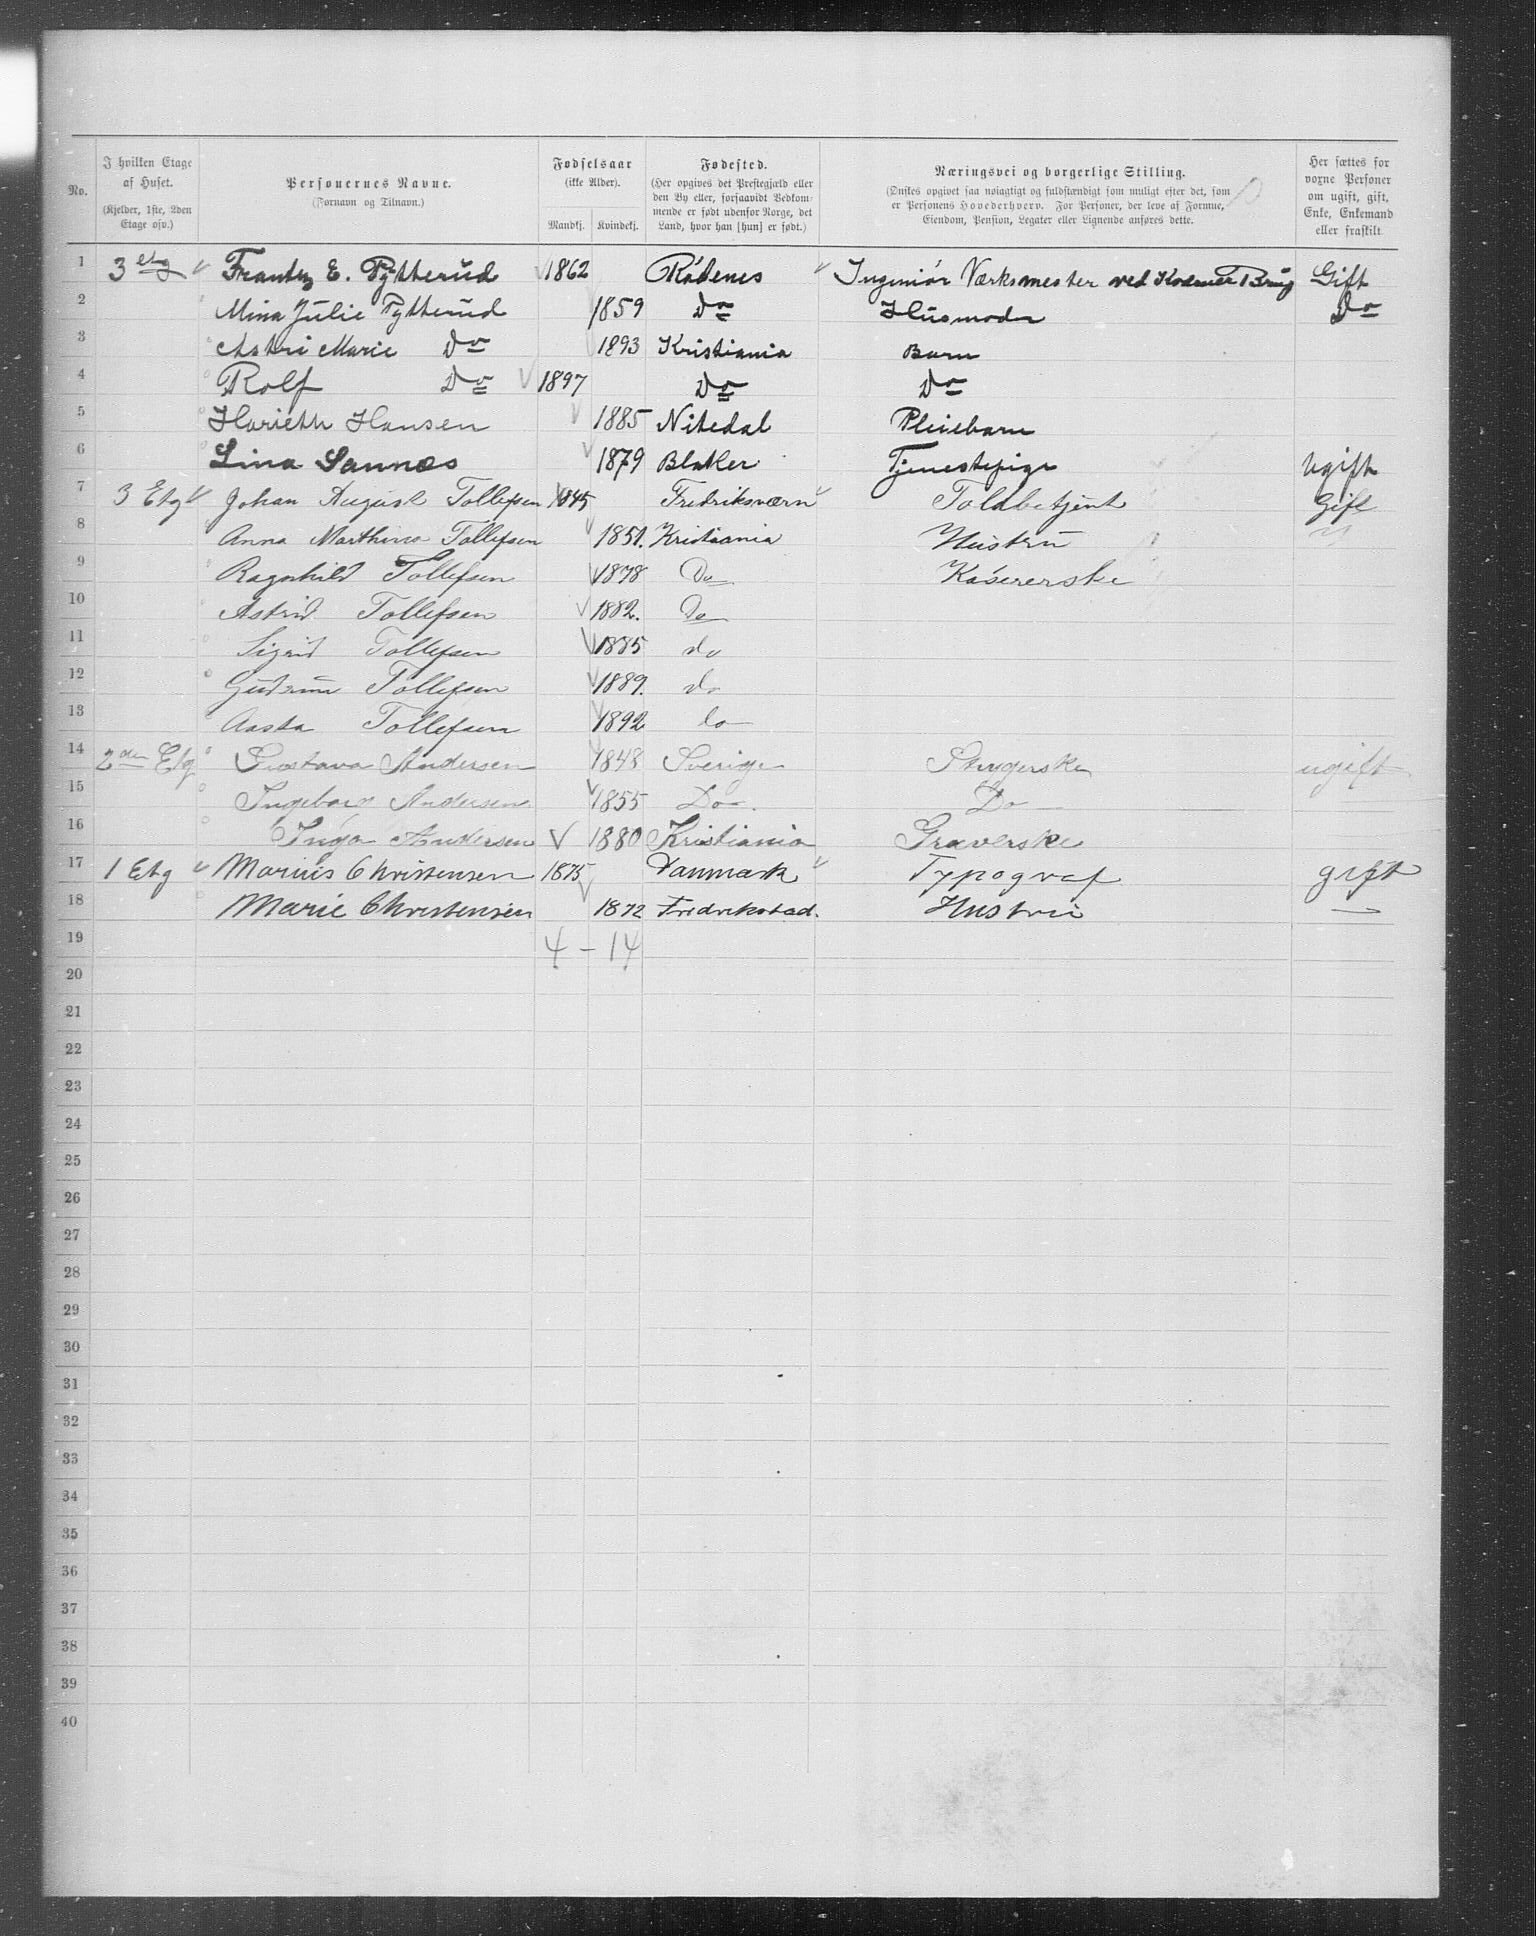 No.
I hvilken Etage af Huset.
(Kjelder, 1ste, 2den Etage osv.)
Personernes Navne.
(Fornavn og Tilnavn.)
Fødselsaar
(ikke Alder).
Mandkj. Kvindekj.
Fødested.
(Her opgives det Prestegjæld eller den By eller, forsaavidt Vedkommende er født udenfor Norge, det Land, hvor han [hun] er født.)
Næringsvei og borgerlige Stilling.
(Ønskes opgivet saa nøiagtigt og fuldstændigt som muligt efter det, som er Personens Hovederhverv. For Personer, der leve af Formue, Eiendom, Pension, Legater eller Lignende anføres dette.
Her sættes for voxne Personer om ugift, gift, Enke, Enkemand eller fraskilt
1 3 etg Frantz E. Pytterud 1862 Rødenes Ingeniør Værksmester ved Kværner Brug Gift
2 Mina Julie Pytterud 1859 Do Husmoder Do
3 Astri Marie Do 1893 Kristiania Barn
4 Rolf Do 1897 Do Do
5 Harieth Hansen 1885 Nitedal Pleiebarn
6 Lina Sannæs 1879 Blaker Tjenestepige Ugift
7 3 Etg Johan August Tollefsen 1845 Fredriksværn Toldbetjent Gift
8 Anna Marthina Tollefsen 1851. Kristiania Hustru
9 Ragnhild Tollefsen 1878 Do Kasererske
10 Astrid Tollefsen 1882. Do
11 Sigrid Tollefsen 1885 do
12 Gudrun Tollefsen 1889. do
13 Aasta Tollefsen 1892 do
14 2den Etg Gustava Andersen 1848 Sverige Strygerske ugift
15 Ingeborg Andersen 1855 Do Do
16 Inga Andersen 1880 Kristiania Graverske
17 1 Etg Marius Christensen 1875 Danmark Typograf gift
18 Marie Christensen 1872 Fredrikstad. Hustru
19 4 - 14
20
21
22
23
24
25
26
27
28
29
30
31
32
33
34
35
36
37
38
39
40